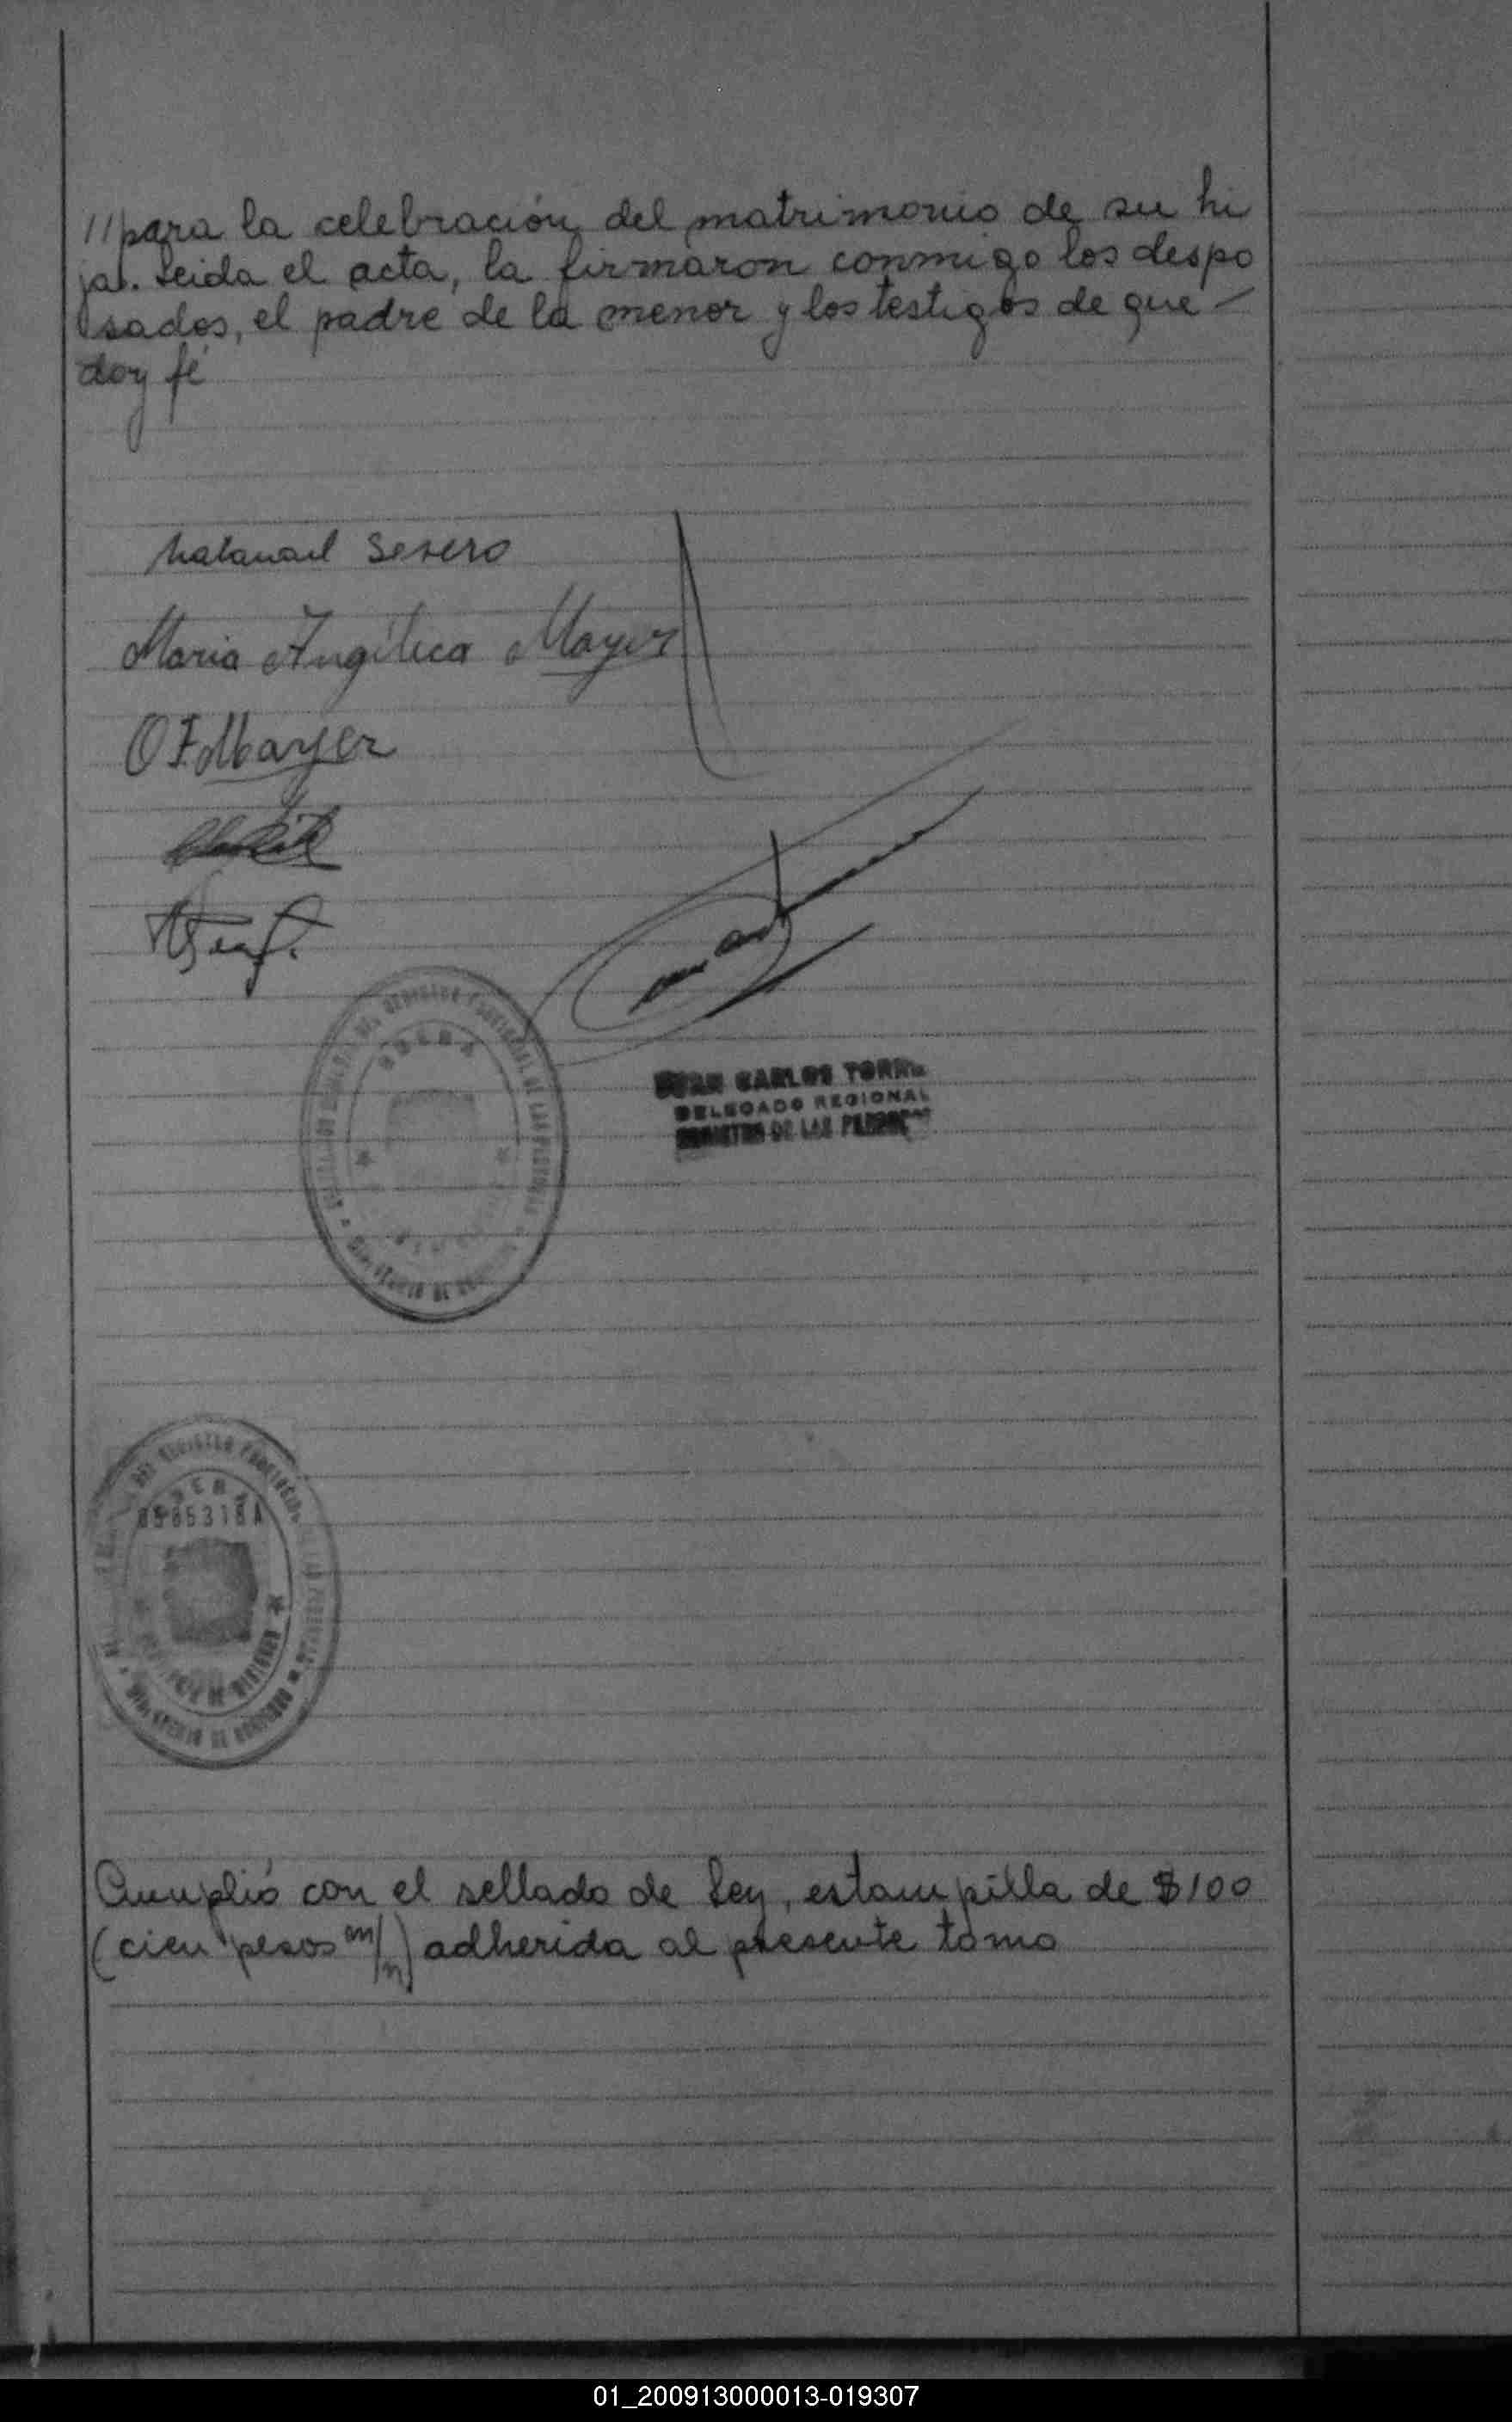 // para la celebración del matrimonio de su hi
ja. Leida el acta, la firmaron conmigo los despo
sados, el padre de la menor y los testigos de que —
doy fé
Natanael Severo
Maria Angélica Mayer
O F Mayer
JUAN CARLOS TORRE
DELEGADO REGIONAL
REGISTRO DE LAS PERSONAS
DEL REGISTRO PROVINCIAL DE LAS PERSONAS
MINISTERIO DE GOBIERNO
Cumplió con el sellado de Ley, estampilla de $100
(cien pesos m/n) adherida al presente tomo
01_200913000013-019307